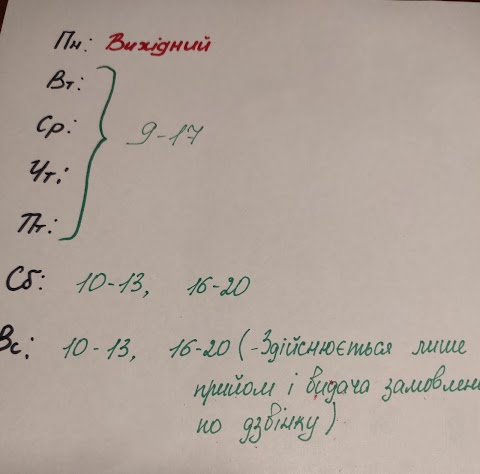 Пн: Вихідний
Вт:
Ср:
9-17
Чт:
Пт:
Сб: 10-13, 16-20
Вс: 10-13, 16-20 (-Здійснюється лише
прийом і видача замовлень
по дзвінку)